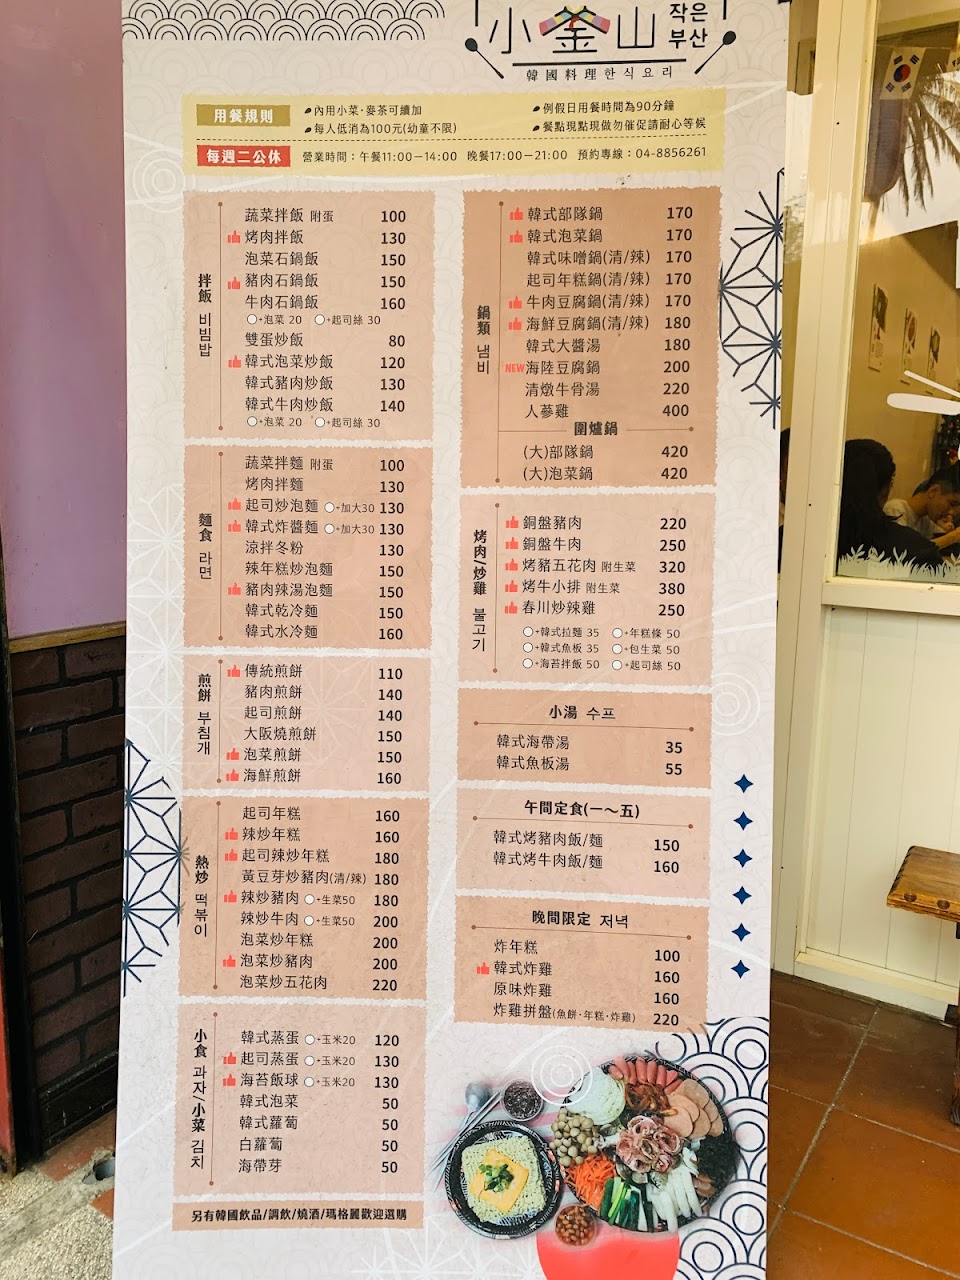 小釜山 작은 부산
韓國料理한식요리
用餐規則
內用小菜·麥茶可續加
每人低消為100元(幼童不限)
例假日用餐時間為90分鐘
餐點現點現做勿催促請耐心等候
每週二公休
營業時間：午餐11:00－14:00 晚餐17:00－21:00 預約專線：04-8856261
拌飯 비빔밥
蔬菜拌飯 附蛋 100
烤肉拌飯 130
泡菜石鍋飯 150
豬肉石鍋飯 150
牛肉石鍋飯 160
○+泡菜 20 ○+起司絲 30
雙蛋炒飯 80
韓式泡菜炒飯 120
韓式豬肉炒飯 130
韓式牛肉炒飯 140
○+泡菜 20 ○+起司絲 30
麵食 라면
蔬菜拌麵 附蛋 100
烤肉拌麵 130
起司炒泡麵 ○+加大30 130
韓式炸醬麵 ○+加大30 130
涼拌冬粉 130
辣年糕炒泡麵 150
豬肉辣湯泡麵 150
韓式乾冷麵 150
韓式水冷麵 160
煎餅 부침개
傳統煎餅 110
豬肉煎餅 140
起司煎餅 140
大阪燒煎餅 150
泡菜煎餅 150
海鮮煎餅 160
熱炒 떡볶이
起司年糕 160
辣炒年糕 160
起司辣炒年糕 180
黃豆芽炒豬肉(清/辣) 180
辣炒豬肉 ○+生菜50 180
辣炒牛肉 ○+生菜50 200
泡菜炒年糕 200
泡菜炒豬肉 200
泡菜炒五花肉 220
小食 과자/小菜 김치
韓式蒸蛋 ○+玉米20 120
起司蒸蛋 ○+玉米20 130
海苔飯球 ○+玉米20 130
韓式泡菜 50
韓式蘿蔔 50
白蘿蔔 50
海帶芽 50
另有韓國飲品/調飲/燒酒/瑪格麗歡迎選購
鍋類 냄비
韓式部隊鍋 170
韓式泡菜鍋 170
韓式味噌鍋(清/辣) 170
起司年糕鍋(清/辣) 170
牛肉豆腐鍋(清/辣) 170
海鮮豆腐鍋(清/辣) 180
韓式大醬湯 180
NEW 海陸豆腐鍋 200
清燉牛骨湯 220
人蔘雞 400
圍爐鍋
(大)部隊鍋 420
(大)泡菜鍋 420
烤肉/炒雞 불고기
銅盤豬肉 220
銅盤牛肉 250
烤豬五花肉 附生菜 320
烤牛小排 附生菜 380
春川炒辣雞 250
○+韓式拉麵 35 ○+年糕條 50
○+韓式魚板 35 ○+包生菜 50
○+海苔拌飯 50 ○+起司絲 50
小湯 수프
韓式海帶湯 35
韓式魚板湯 55
午間定食(一～五)
韓式烤豬肉飯/麵 150
韓式烤牛肉飯/麵 160
晚間限定 저녁
炸年糕 100
韓式炸雞 160
原味炸雞 160
炸雞拼盤(魚餅·年糕·炸雞) 220